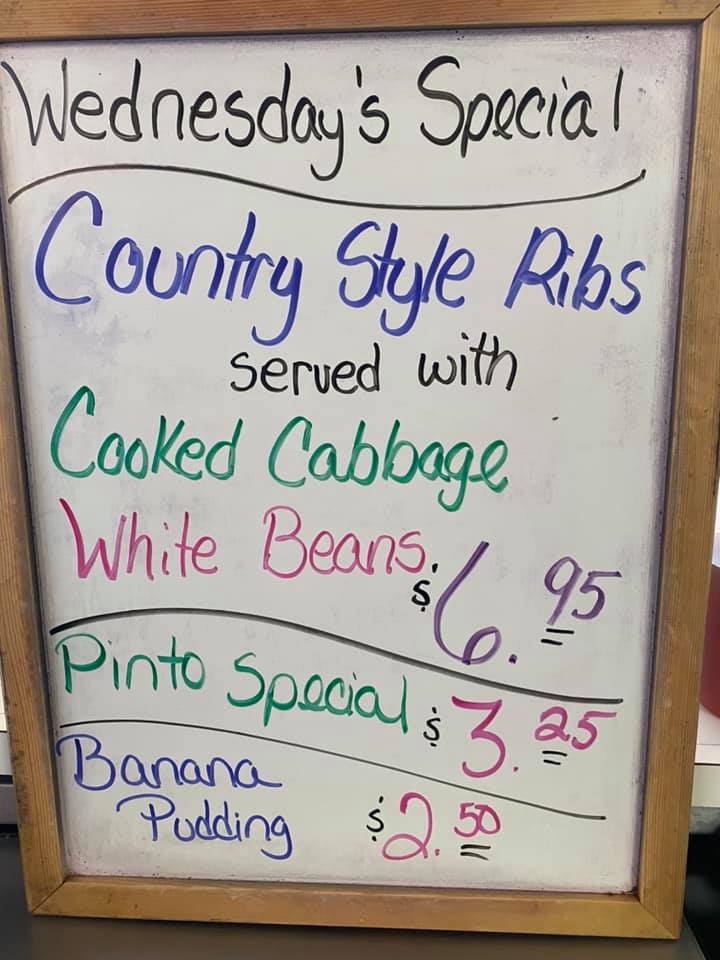 Wednesday's Special
Country Style Ribs
served with
Cooked Cabbage
White Beans.
$6.95
Pinto Special $3.25
Banana
Pudding $2.50